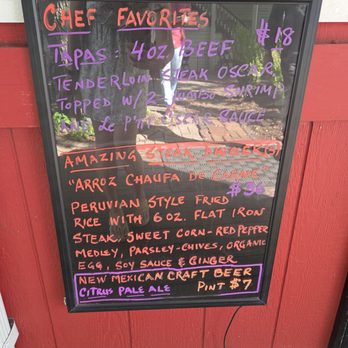 CHEF FAVORITES
TAPAS: 4OZ. BEEF $18
TENDERLOIN STEAK OSCAR
TOPPED W/2 JUMBO SHRIMP
SAUCE
AMAZING STEAK
"ARROZ CHAUFA DE CARNE"
$36
PERUVIAN STYLE FRIED
RICE WITH 6 OZ. FLAT IRON
STEAK, SWEET CORN-RED PEPPER
MEDLEY, PARSLEY-CHIVES, ORGANIC
EGG, SOY SAUCE & GINGER
NEW MEXICAN CRAFT BEER
CITRUS PALE ALE PINT $7